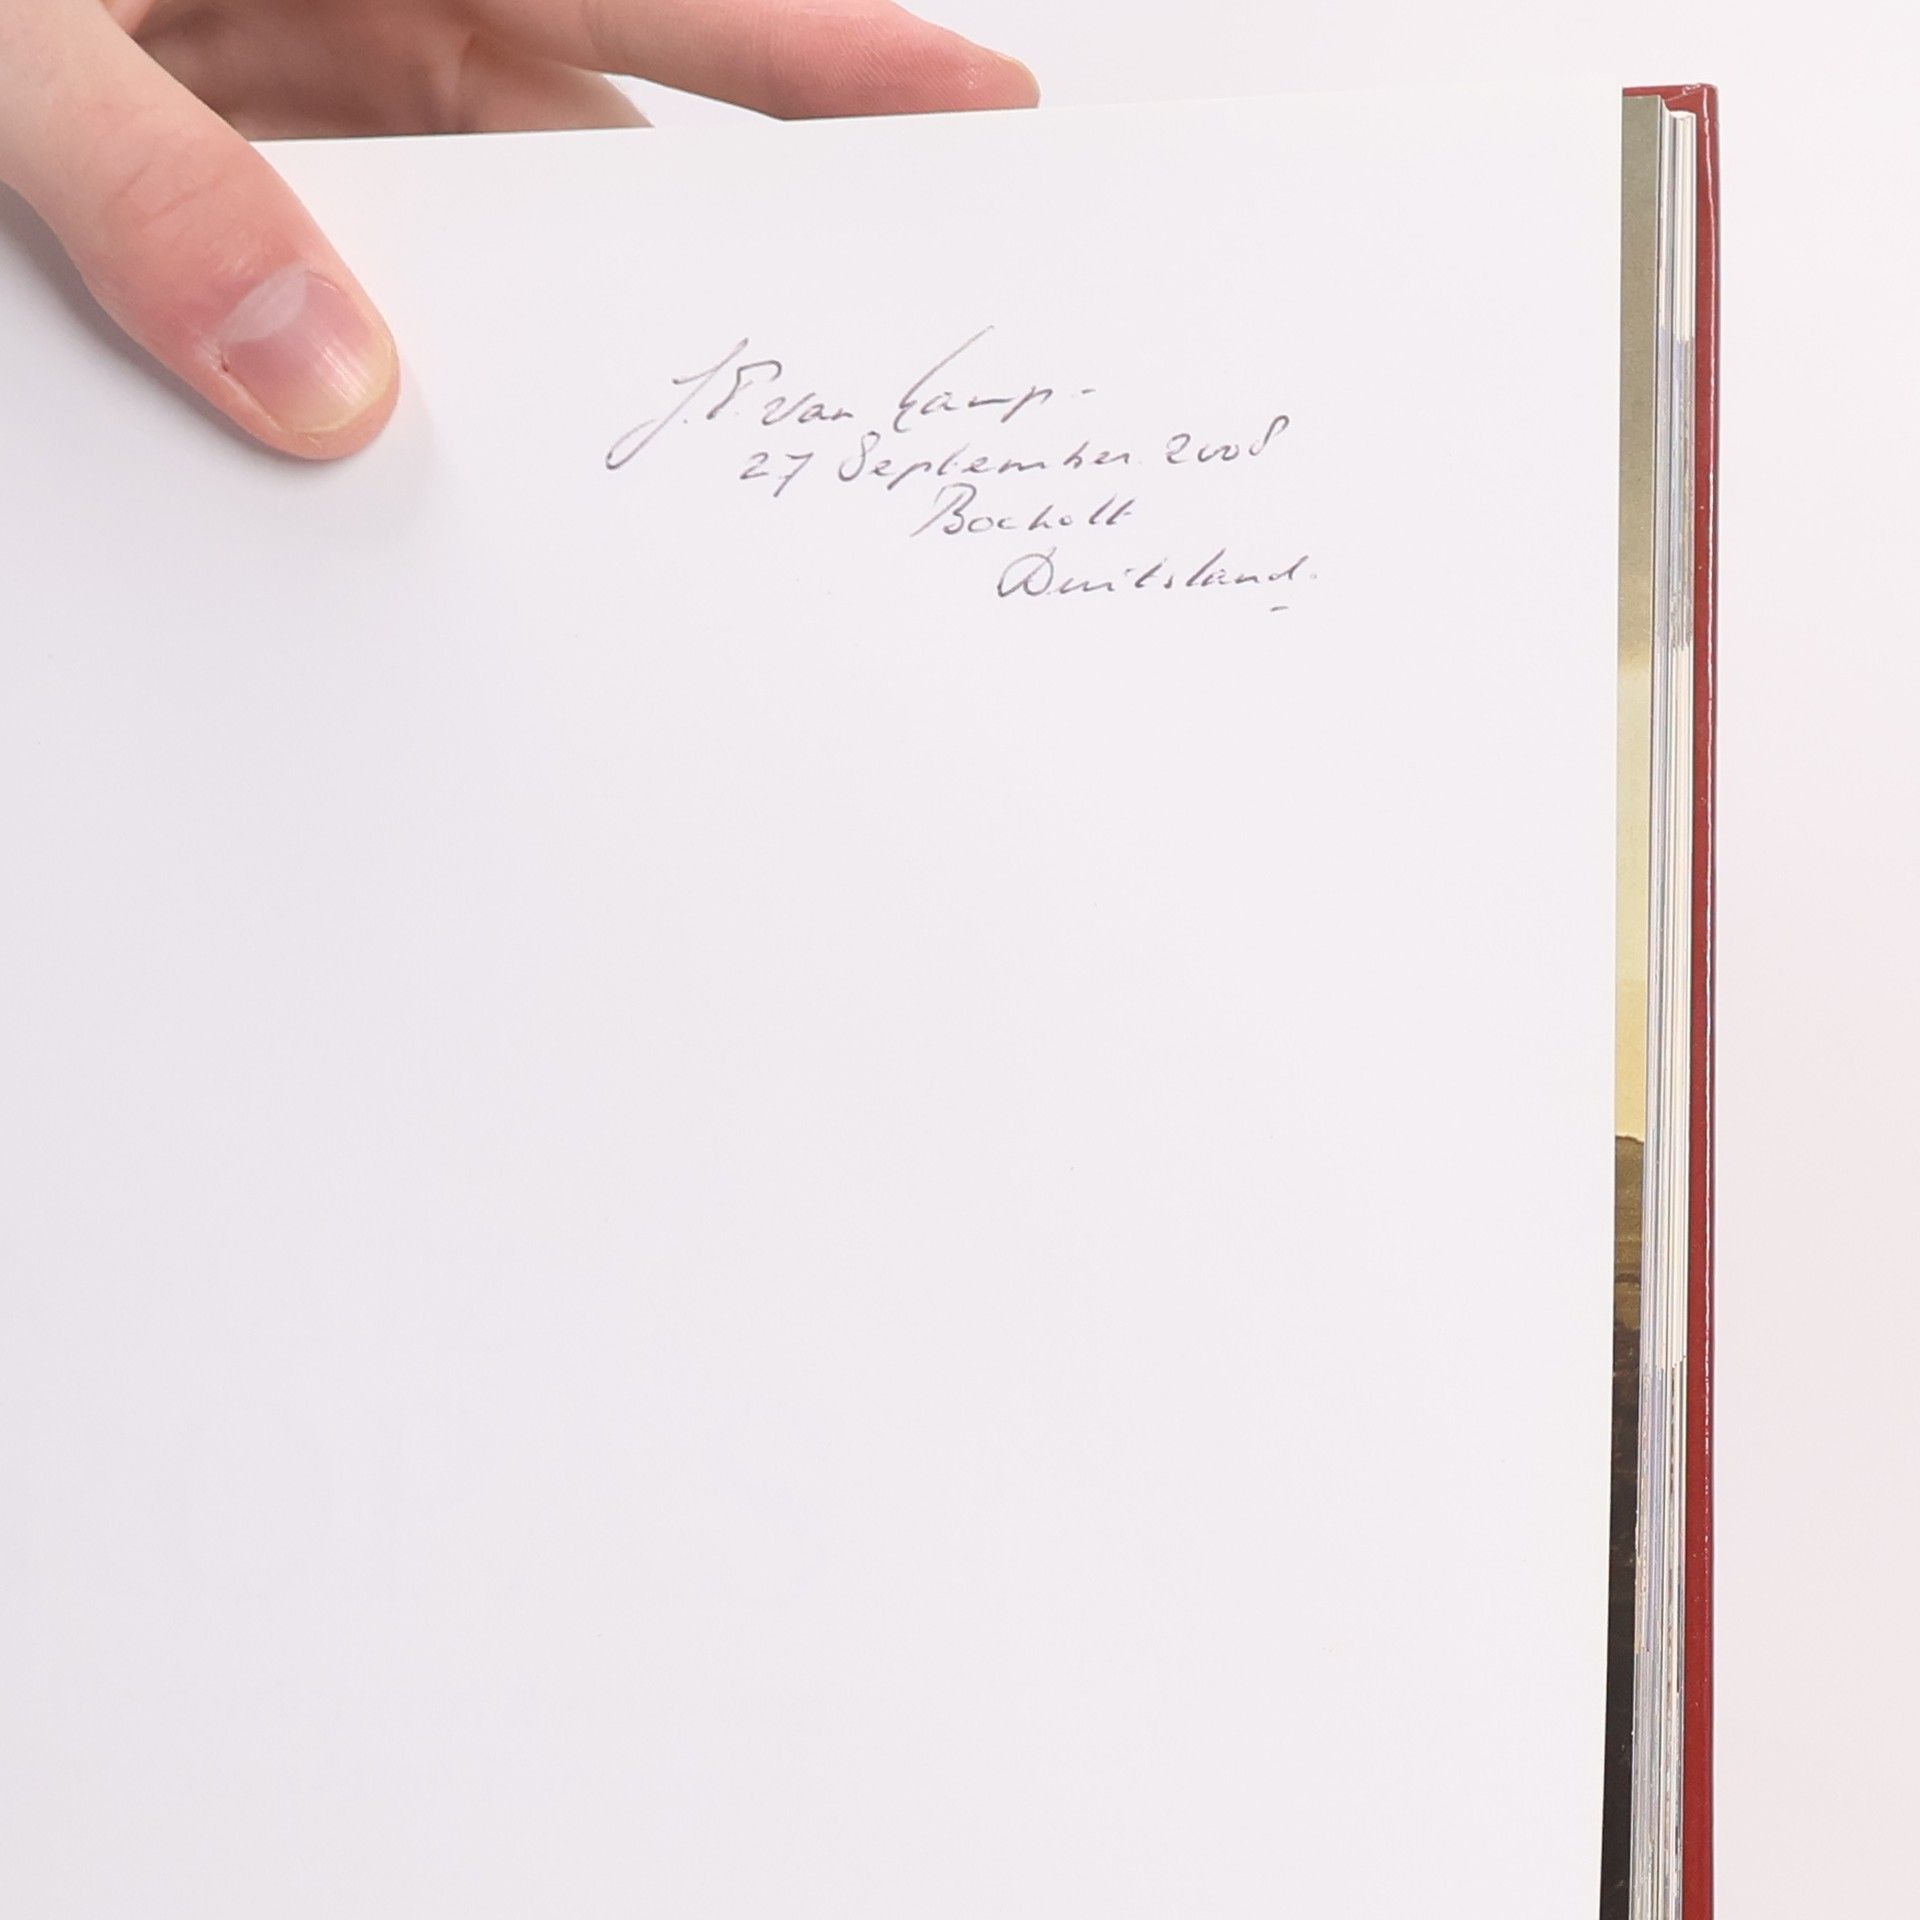 J.F. van Kamp -
27 September 2008
Bocholt
Duitsland.